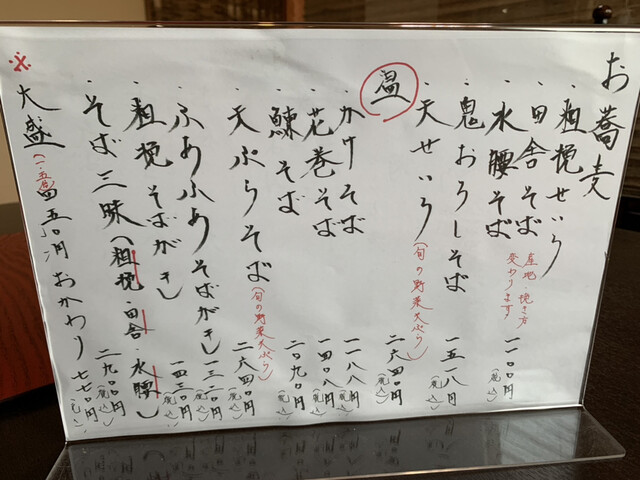 お蕎麦
・粗挽せいろ
・田舎そば
・水腰そば
産地・挽き方
変わります
一一〇〇円(税込)
・鬼おろしそば 一五一八円(税込)
・天せいろ(旬の野菜天ぷら) 二六四〇円(税込)
温
・かけそば 一一八八円(税込)
・花巻そば 一四〇八円(税込)
・鰊そば 二〇九〇円(税込)
・天ぷらそば(旬の野菜天ぷら) 二六四〇円(税込)
・ふあふあそばがき 一三二〇円(税込)
・粗挽そばがき 一四三〇円(税込)
・そば三昧(粗挽・田舎・水腰) 二九〇〇円(税込)
※大盛(一・五倍)四五〇円 おかわり 七七〇円(税込)